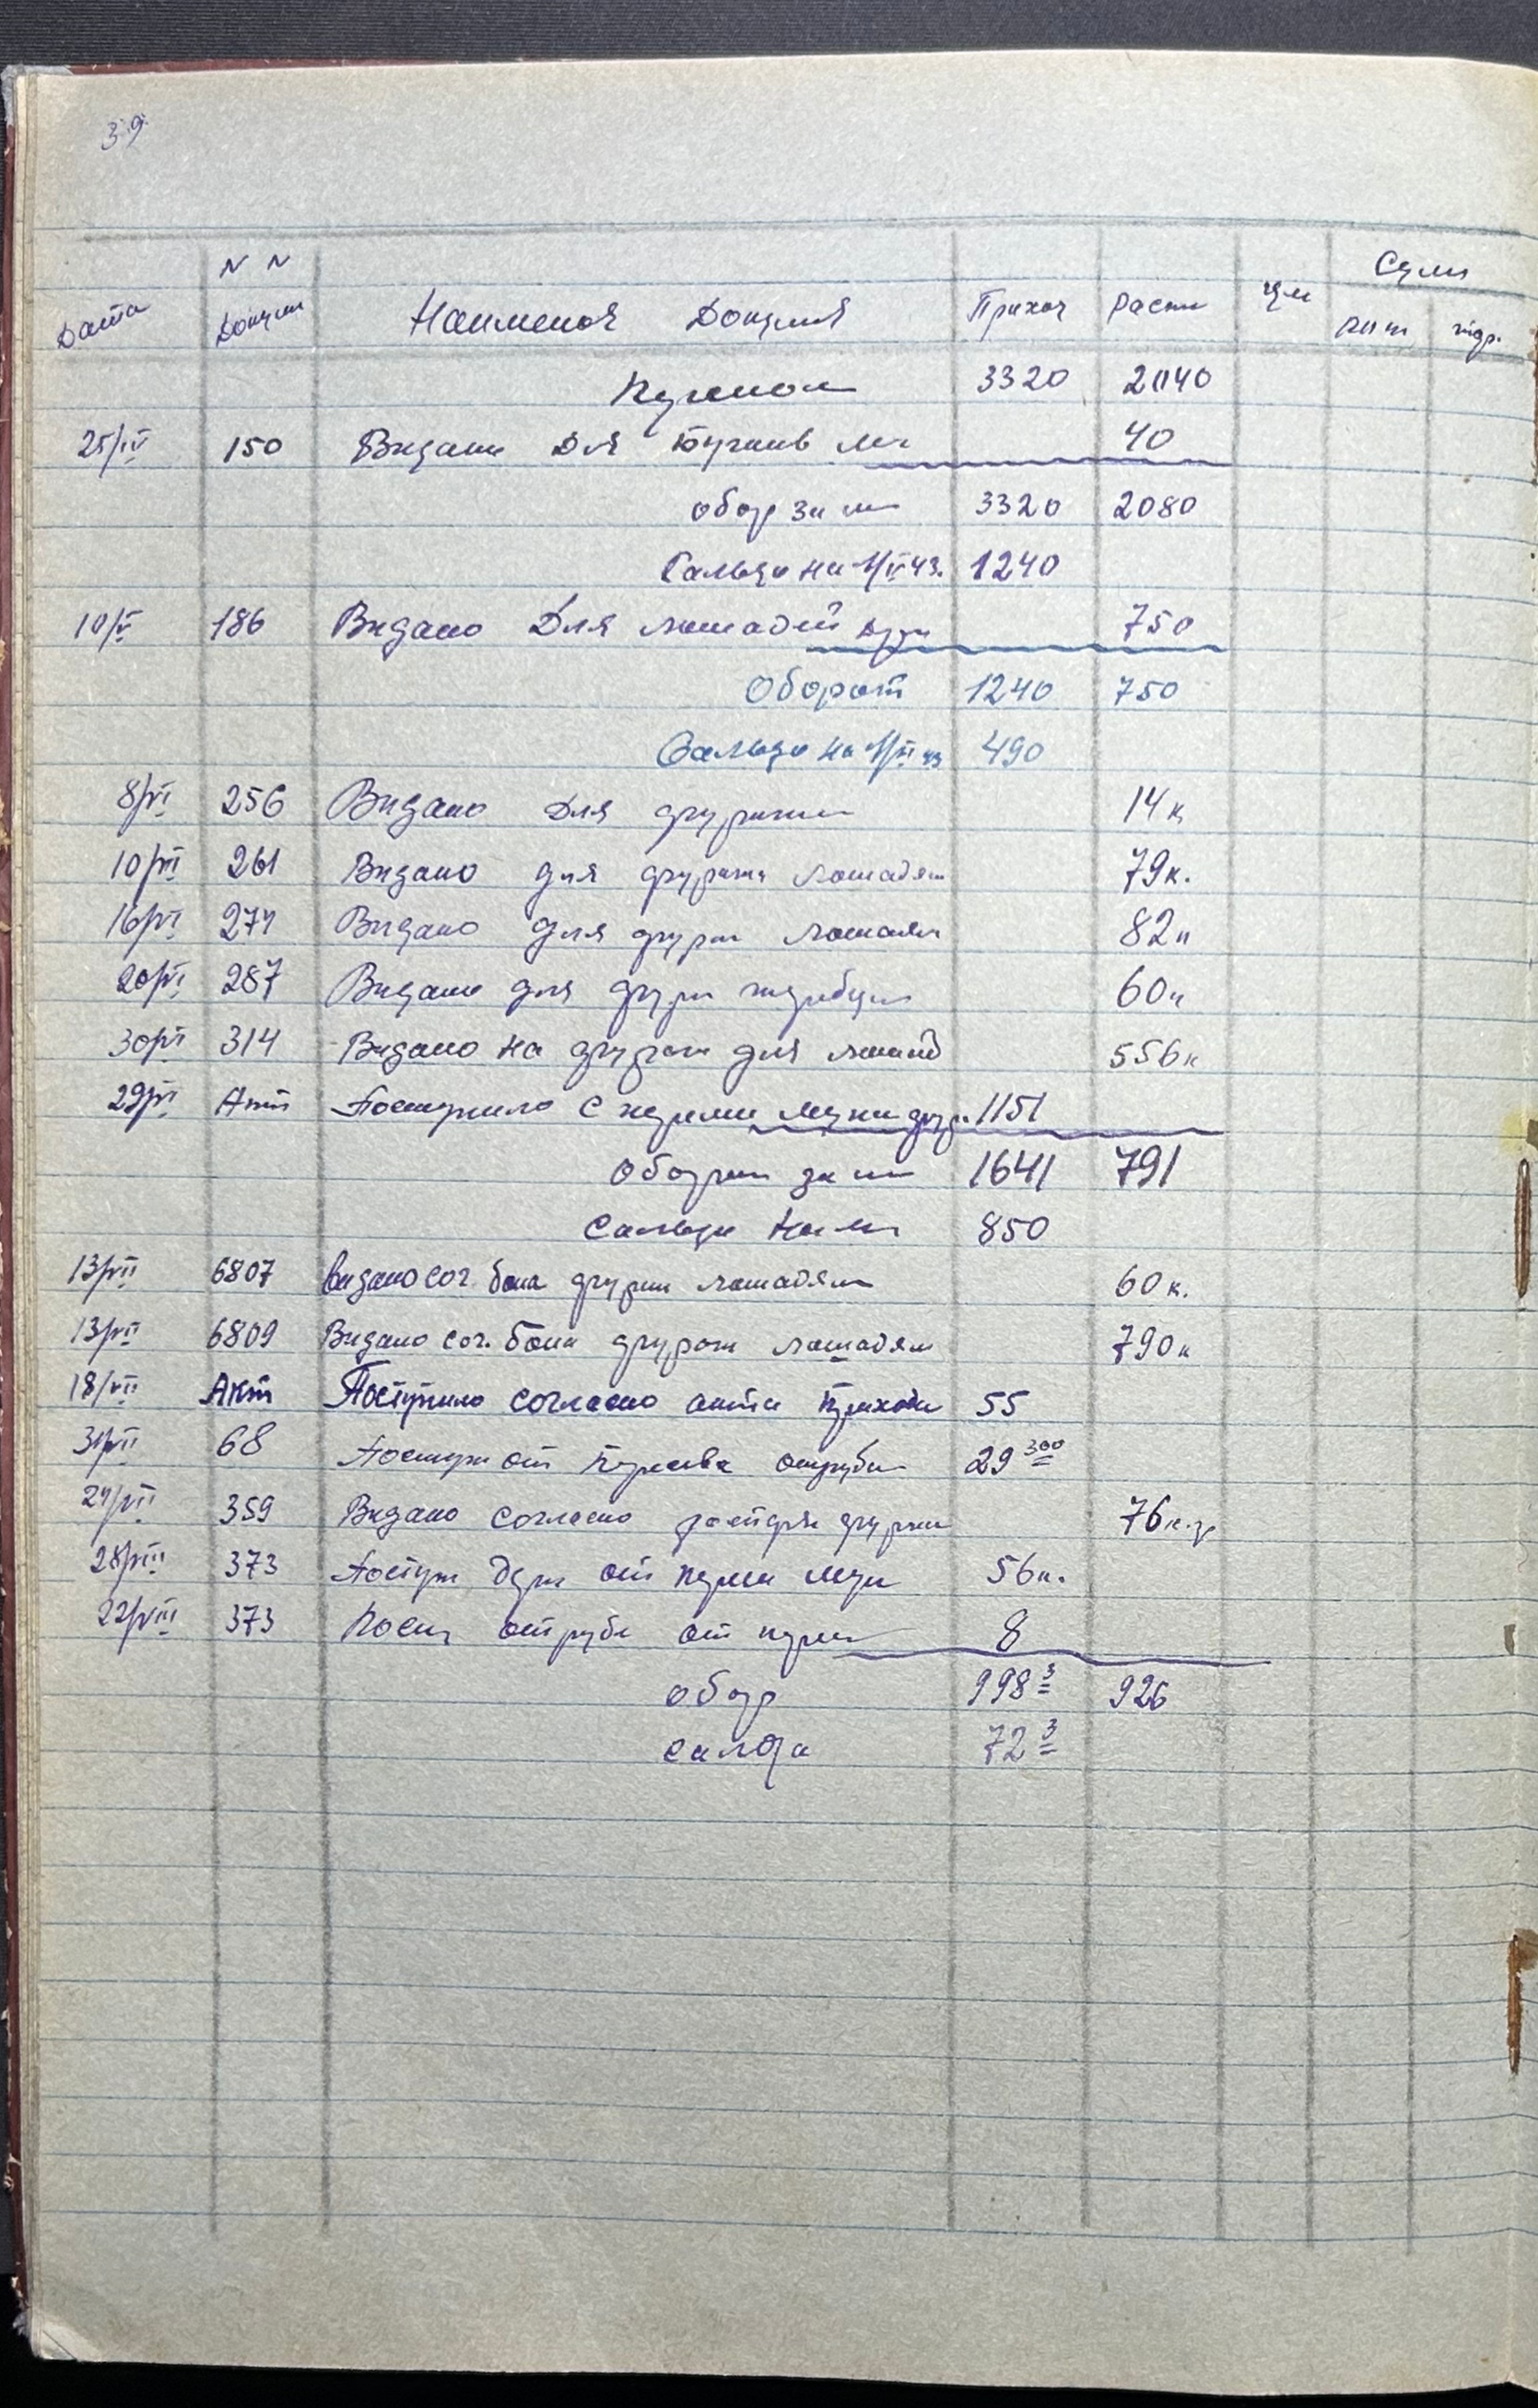 39
N N Сума
Дата Докум Наименов Докумен Приход Расход
3320 2040
25/IV 150 Видано Для 40
Обор за м 3320 2080
Сальдо на 1/V 43. 1240
10/V 186 Видано Для лошадей 750
Оборот 1240 750
Сальдо на 1/VI 43 490
8/VI 256 Видано Для фуражи 14к
10/VI 261 Видано для фуража лошадям 79к.
16/VI 274 Видано для фураж лошадям 82к
20/VI 287 Видано для фураж жеребцам 60к
30/VI 314 Видано на фураж для лошад 556к
29/VI Акт Поступило с муки фур. 1151
Оборот за м 1641 791
Сальдо На м 850
13/VII 6807 Видано сог. бона фураж лошадям 60к.
13/VII 6809 Видано сог. бона фураж лошадям 790к
18/VII Акт Поступило согласно акта прихода 55
31/VII 68 Поступ от отруби 29 300
24/VII 359 Видано согласно фуражи 76к.
28/VIII 373 Поступ от муки 56к.
22/VIII 373 Пост отруби от 8
Обор 998 3 926
Салда 72 3